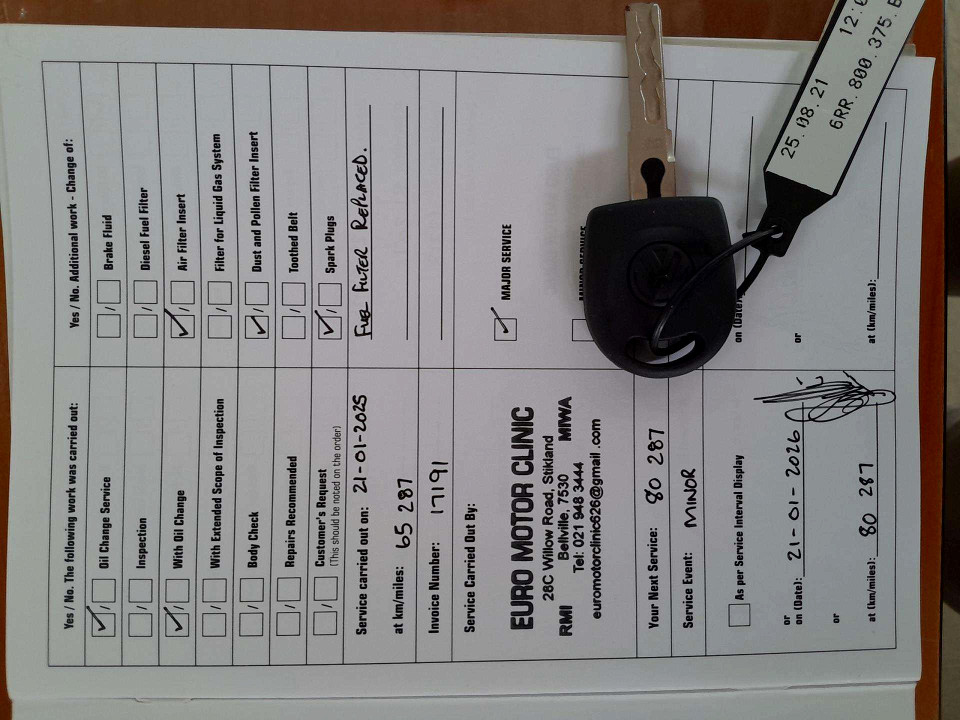 Yes / No. The following work was carried out:
Oil Change Service
Inspection
With Oil Change
With Extended Scope of Inspection
Body Check
Repairs Recommended
Customer's Request
(This should be noted on the order)
Service carried out on: 21-01-2025
at km/miles: 65 287
Invoice Number: 17191
Service Carried Out By:
EURO MOTOR CLINIC
28C Willow Road, Stikland
RMI Bellville, 7530 MIWA
Tel: 021 948 3444
euromotorclinic626@gmail.com
Your Next Service: 80 287
Service Event: MINOR
As per Service Interval Display
or
on (Date): 21-01-2026
or
at (km/miles): 80 287
Yes / No. Additional work - Change of:
Brake Fluid
Diesel Fuel Filter
Air Filter Insert
Filter for Liquid Gas System
Dust and Pollen Filter Insert
Toothed Belt
Spark Plugs
FUEL FILTER REPLACED.
MAJOR SERVICE
on (Date):
or
at (km/miles):
25.08.21
6RR.800.375.